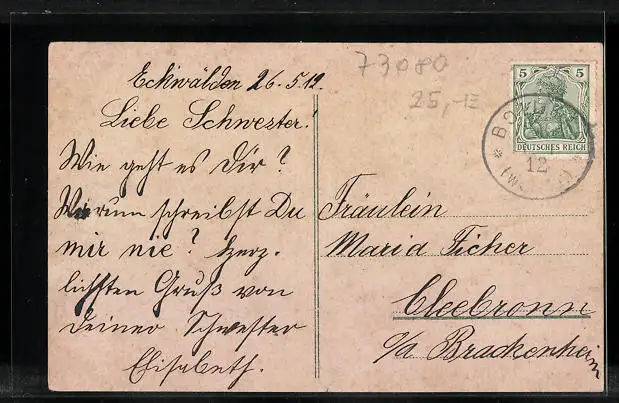 73080
25,-
Eckwälden 26.5.12.
Liebe Schwester!
Wie geht es Dir?
Warum schreibst Du
mir nie? Herz-
lichsten Gruß von
Deiner Schwester
Elisabeth.
5 5
DEUTSCHES REICH
BOLL
12
Fräulein
Maria Ficher
Cleebronn
o/a Brackenheim